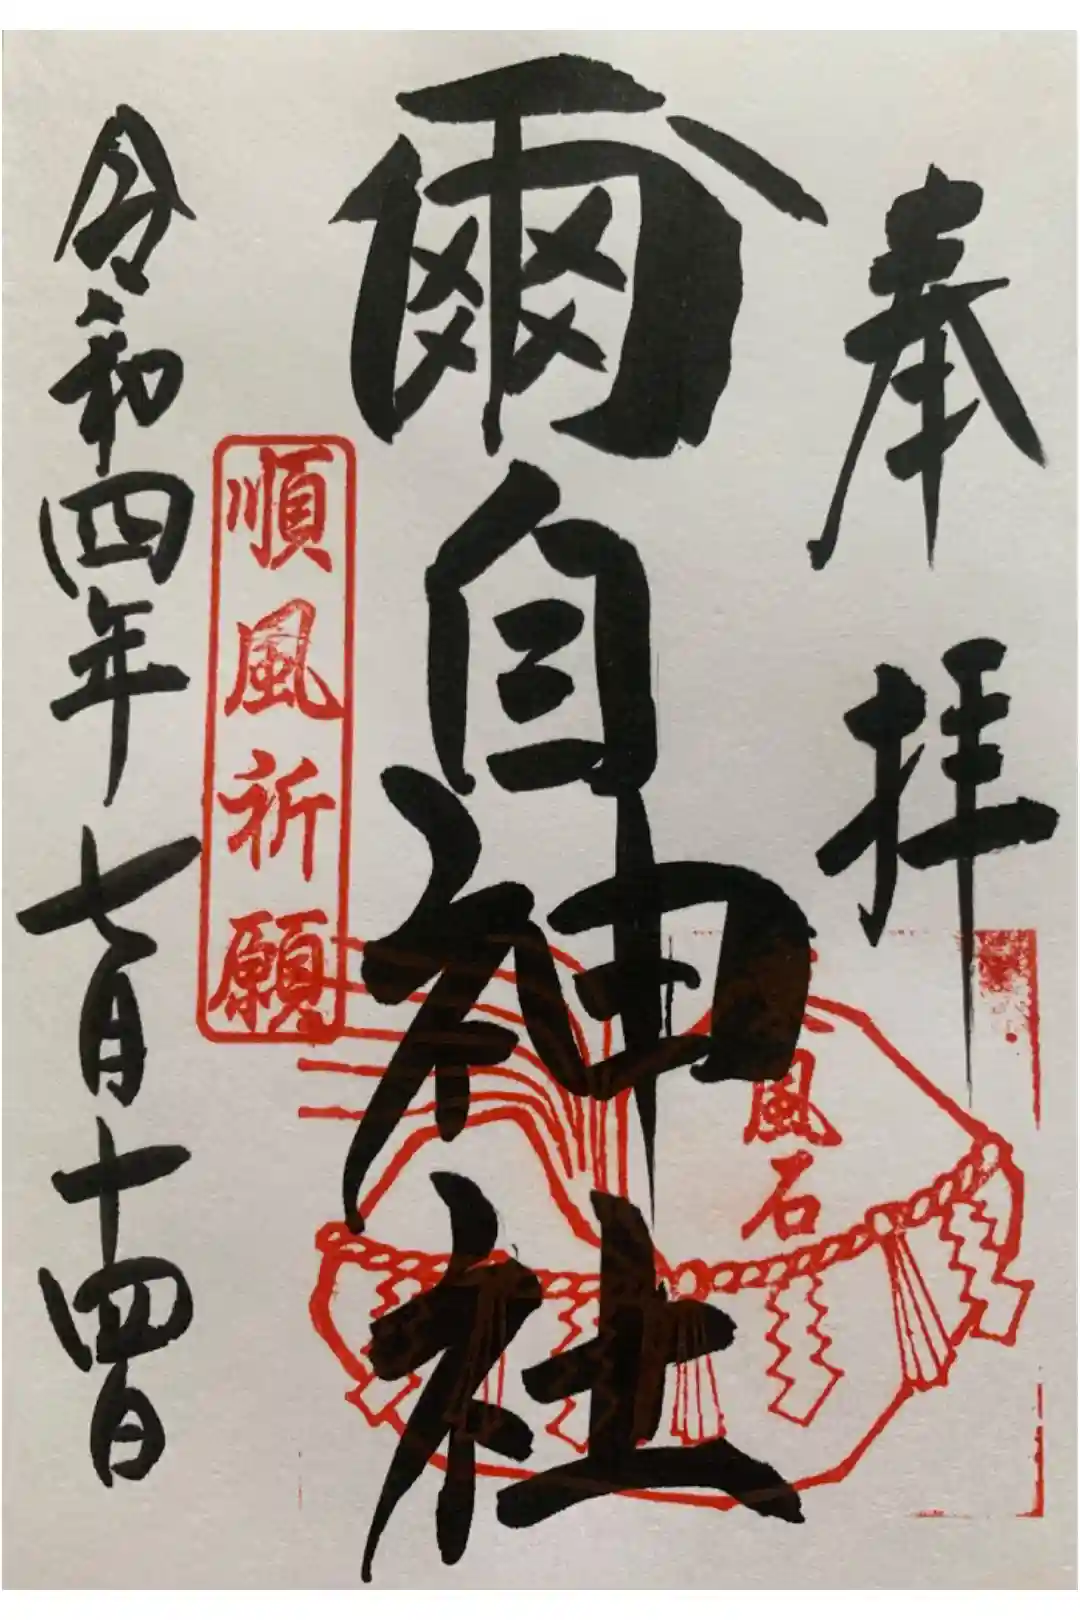 奉拝
爾自神社
風石
順風祈願
令和四年七月十四日